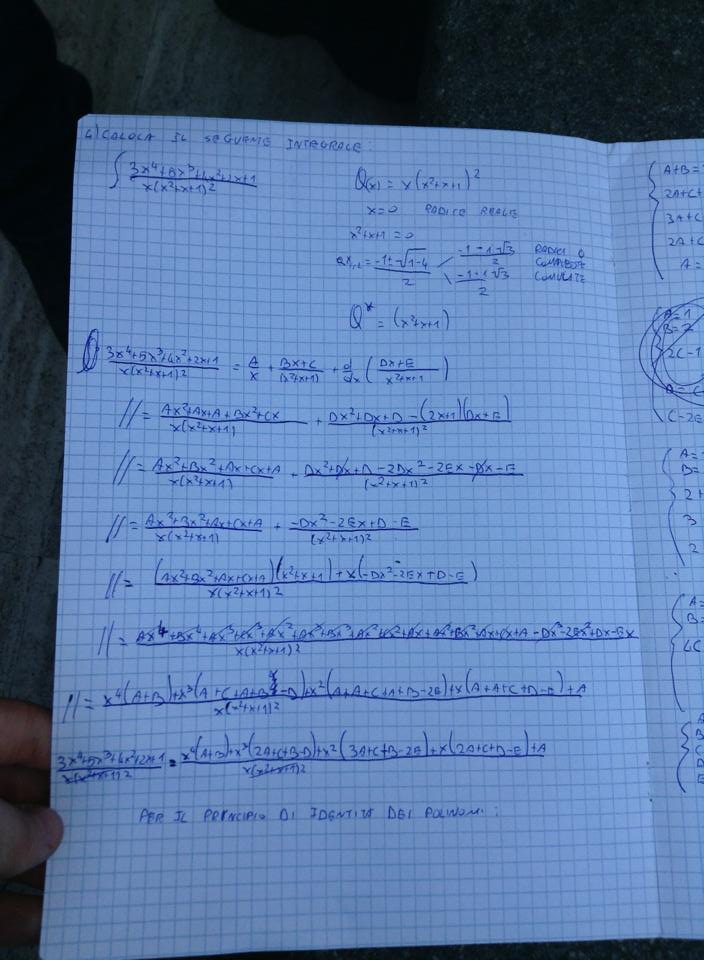 4) CALCOLA IL SEGUENTE INTEGRALE:
∫ 3x⁴+5x³+4x²+2x+1 / x(x²+x+1)²
Q(x) = x(x²+x+1)²
x=0 RADICE REALE
x²+x+1=0
x₁,₂ = -1±√1-4 / 2
-1-i√3 / 2
-1+i√3 / 2
RADICI
COMPLESSE
CONIUGATE
Q* = (x²+x+1)
3x⁴+5x³+4x²+2x+1 / x(x²+x+1)² = A/x + Bx+C / (x²+x+1) + d/dx (Dx+E / x²+x+1)
// = Ax²+Ax+A+Bx²+Cx / x(x²+x+1) + Dx²+Dx+D-(2x+1)(Dx+E) / (x²+x+1)²
// = Ax²+Bx²+Ax+Cx+A / x(x²+x+1) + Dx²+Dx+D-2Dx²-2Ex-Dx-E / (x²+x+1)²
// = Ax²+Bx²+Ax+Cx+A / x(x²+x+1) + -Dx²-2Ex+D-E / (x²+x+1)²
// = (Ax²+Bx²+Ax+Cx+A)(x²+x+1)+x(-Dx²-2Ex+D-E) / x(x²+x+1)²
// = Ax⁴+Bx⁴+Ax³+Cx³+Ax²+Ax³+Bx³+Ax²+Cx²+Ax+Ax²+Bx²+Ax+Cx+A-Dx³-2Ex²+Dx-Ex / x(x²+x+1)²
// = x⁴(A+B)+x³(A+C+A+B-D)+x²(A+A+C+A+B-2E)+x(A+A+C+D-E)+A / x(x²+x+1)²
3x⁴+5x³+4x²+2x+1 / x(x²+x+1)² = x⁴(A+B)+x³(2A+C+B-D)+x²(3A+C+B-2E)+x(2A+C+D-E)+A / x(x²+x+1)²
PER IL PRINCIPIO DI IDENTITÀ DEI POLINOMI:
A+B=
2A+C+
3A+C
2A+C
A=
A=1
B=2
2C-1
C-2E
A=
B=
2+
3
2
A=
B=
4C
A
B
C
D
E